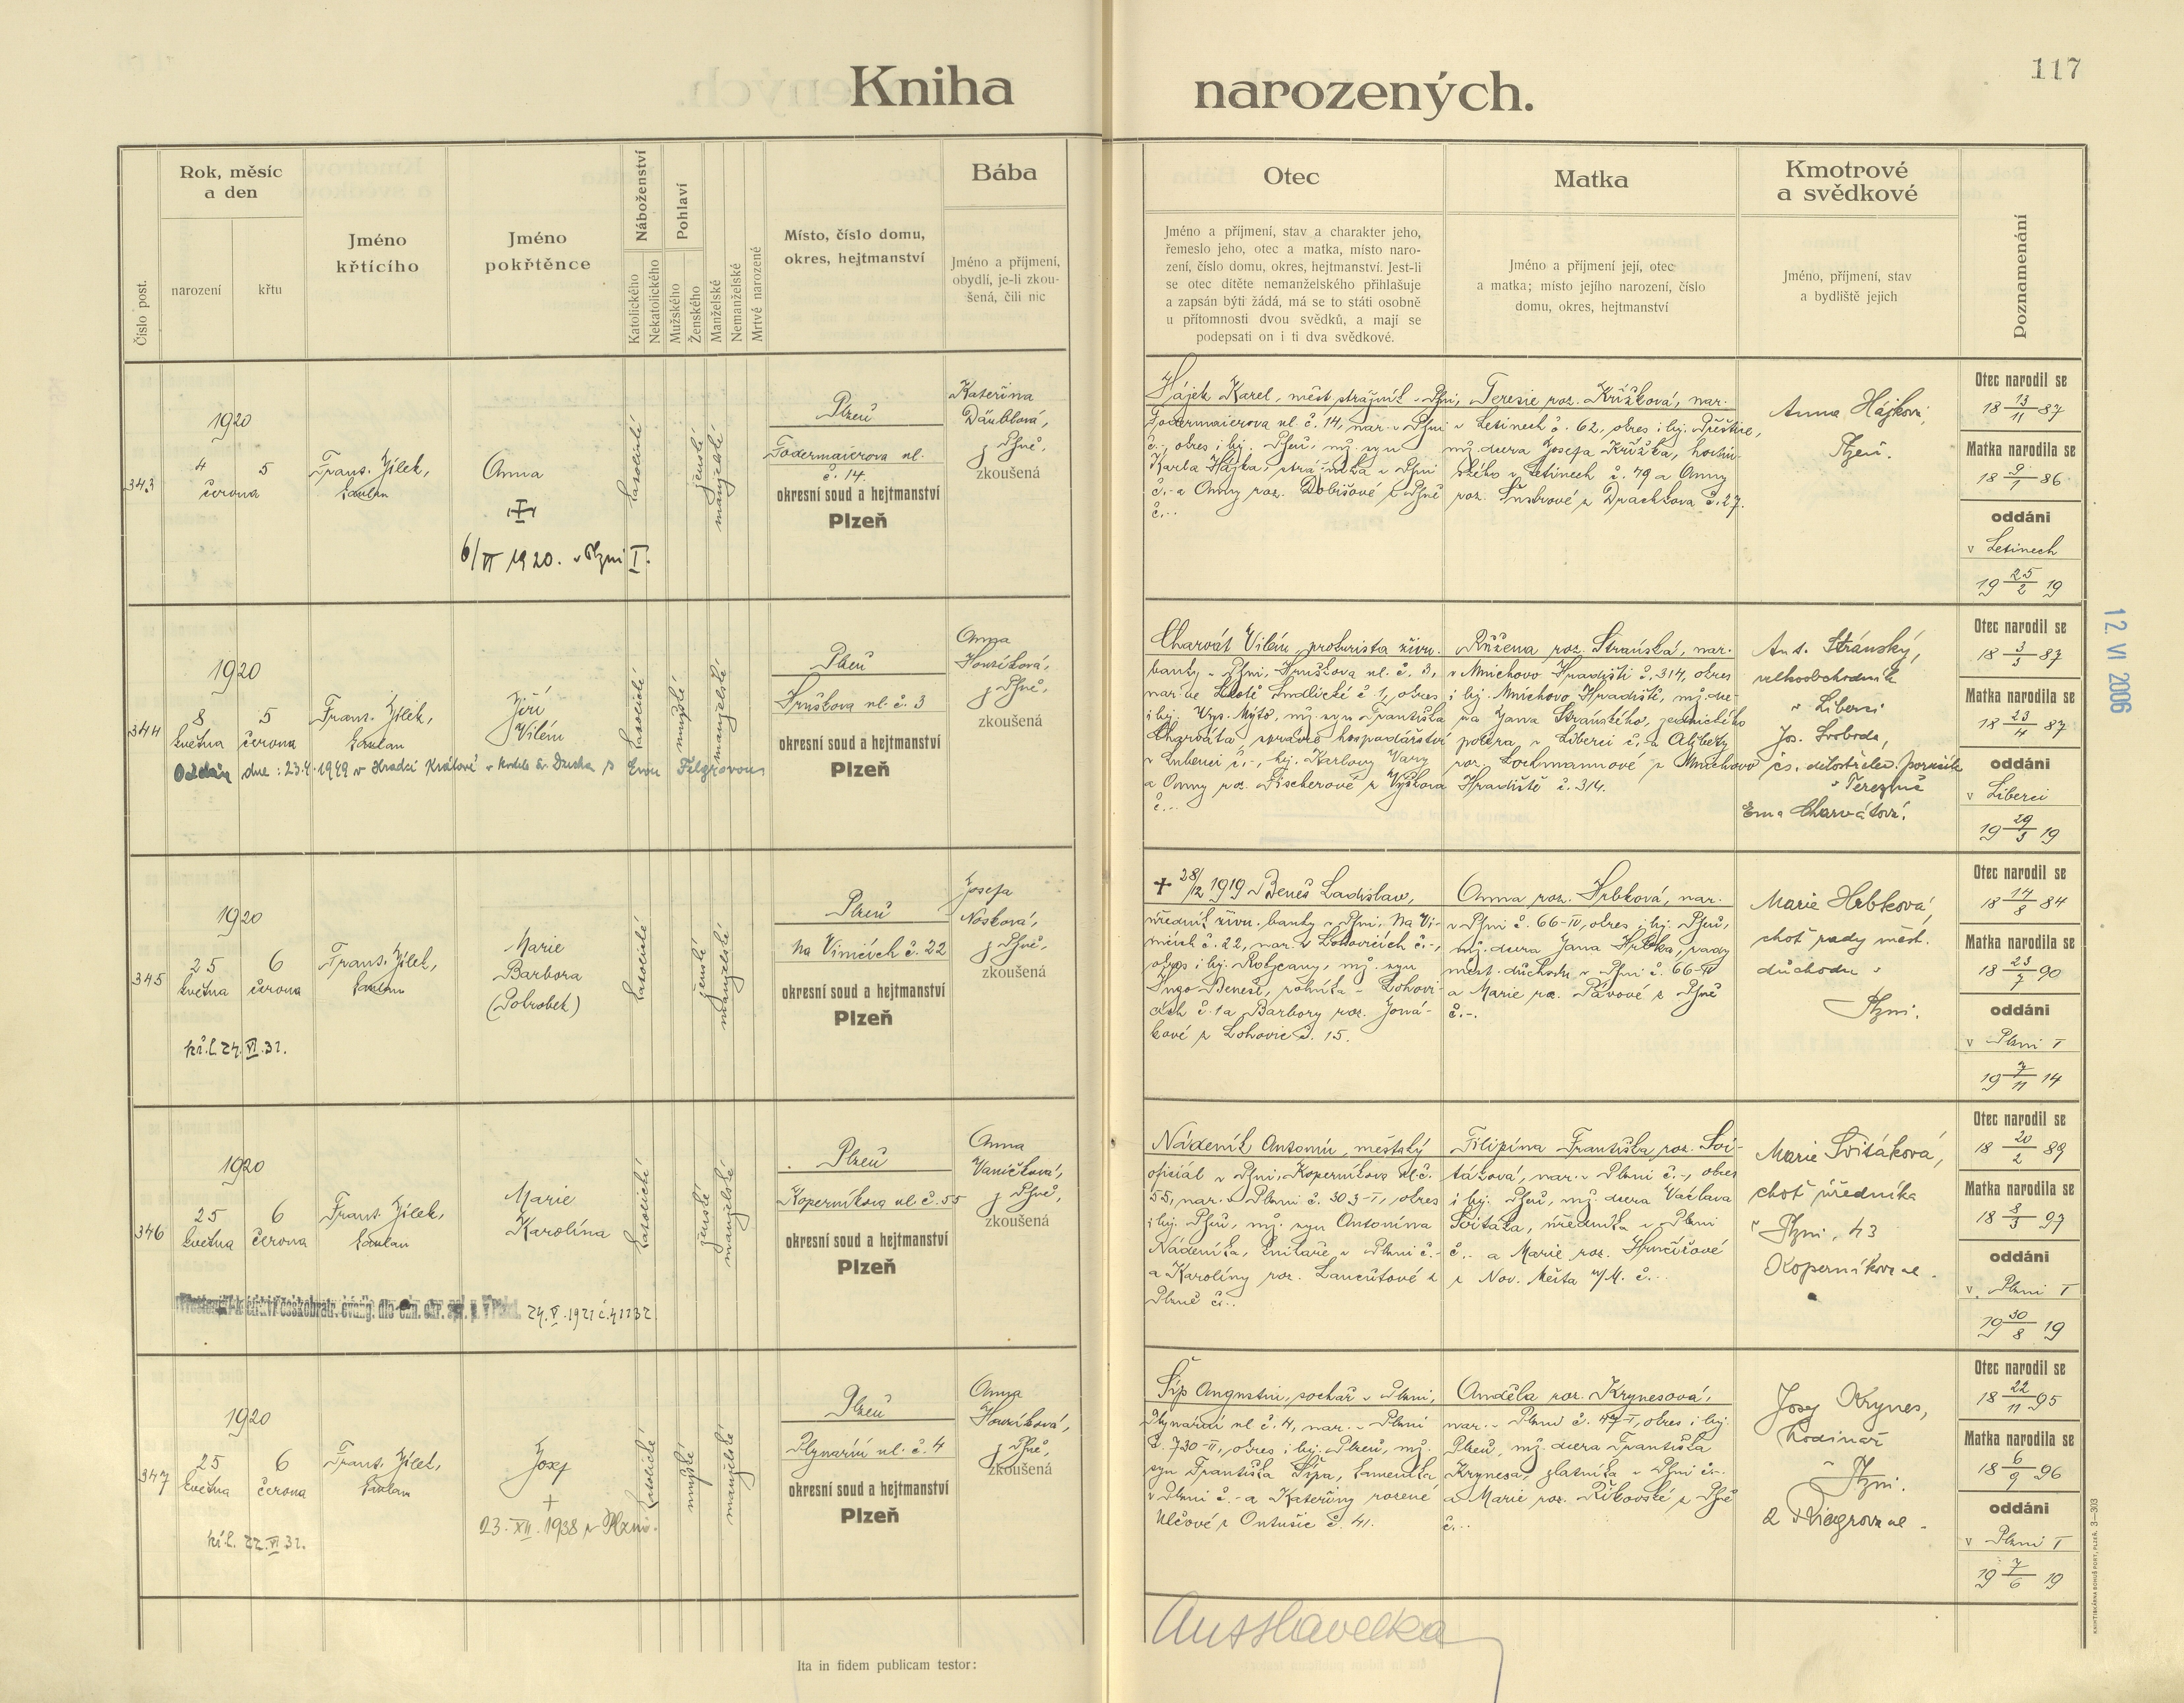 117
Kniha narozených.
Číslo post.
Rok, měsíc
a den
narození
křtu
Jméno
křtícího
Jméno
pokřtěnce
Náboženství
Katolického
Nekatolického
Pohlaví
Mužského
Ženského
Manželské
Nemanželské
Mrtvě narozené
Místo, číslo domu,
okres, hejtmanství
Bába
Jméno a příjmení,
obydlí, je-li zkou-
šená, čili nic
Otec
Jméno a příjmení, stav a charakter jeho,
řemeslo jeho, otec a matka, místo naro-
zení, číslo domu, okres, hejtmanství. Jest-li
se otec dítěte nemanželského přihlašuje
a zapsán býti žádá, má se to státi osobně
u přítomnosti dvou svědků, a mají se
podepsati on i ti dva svědkové.
Matka
Jméno a příjmení její, otec
a matka; místo jejího narození, číslo
domu, okres, hejtmanství
Kmotrové
a svědkové
Jméno, příjmení, stav
a bydliště jejich
Poznamenání
343
1920
4 5
června
Frant. Jílek,
kaplan
Anna
6/VI 1920. v Plzni I.
katolické
ženské
manželské
Plzeň
Todermaierova ul.
č. 14.
okresní soud a hejtmanství
Plzeň
Kateřina
Däublová,
z Plzně,
zkoušená
Hájek Karel, měst. strážník v Plzni,
Todermaierova ul. č. 14, nar. v Plzni
č.-, okres i hej. Plzeň, mž. syn
Karla Hájka, strážníka v Plzni
č.- a Anny roz. Dobišové z Plzně
č.-.
Terezie roz. Křížková, nar.
v Letinech č. 62, okres i hej. Přeštice,
mž. dcera Josefa Křížka, horní-
ckého v Letinech č. 79 a Anny
roz. Šnebrové z Drachkova č. 27.
Anna Hájková,
Plzeň.
Otec narodil se
18 13/11 87
Matka narodila se
18 9/1 86
oddáni
v Letinech
19 25/2 19
344
1920
8 5
května června
Frant. Jílek,
kaplan
Jiří
Vilém
Oddán dne: 23.4.1949 v Hradci Králové v kostele Sv. Ducha s Evou Felgrovou
katolické
mužské
manželské
Plzeň
Hruškova ul. č. 3
okresní soud a hejtmanství
Plzeň
Anna
Houzíková,
z Plzně,
zkoušená
Charvát Vilém, prokurista živn.
banky v Plzni, Hruškova ul. č. 3,
nar. ve Lhotě č. 1, okres
i hej. Vys. Mýto, mž. syn Františka
Charváta, správce hospodářství
v Lubenci č.-, hej. Karlovy Vary
a Anny roz. Fischerové z Vyškova
č.-.
Růžena roz. Stránská, nar.
v Mnichovo Hradišti č. 314, okres
i hej. Mnichovo Hradiště, mž. dce-
ra Jana Stránského,
v Liberci č.- a Alžběty
roz. Lochmannové z Mnichovo
Hradiště č. 314.
Ant. Stránský,
velkoobchodník
v Liberci
Jos. Svoboda,
čs. dělostřelec. poručík
v Terezíně
Ema Charvátová.
Otec narodil se
18 3/3 87
Matka narodila se
18 23/4 87
oddáni
v Liberci
19 29/3 19
12. VI 2006
345
1920
25 6
května června
kř. l. 24.VI.32.
Frant. Jílek,
kaplan
Marie
Barbora
(Pohrobek)
katolické
ženské
manželské
Plzeň
Na Vinicích č. 22
okresní soud a hejtmanství
Plzeň
Josefa
Nosková,
z Plzně,
zkoušená
+ 28/12 1919 Beneš Ladislav,
úředník živn. banky v Plzni, Na Vi-
nicích č. 22, nar. v Lohovicích č.-,
okres i hej. Rokycany, mž. syn
Beneše, rolníka v Lohovi-
cích č. 1 a Barbory roz. Joná-
kové z Lohovic č. 15.
Anna roz. Hrbková, nar.
v Plzni č. 66-IV, okres i hej. Plzeň,
mž. dcera Jana Hrbka, rady
měst. důchodu v Plzni č. 66-IV
a Marie roz. Pávové z Plzně
č.-.
Marie Hrbková,
choť rady měst.
důchodu v
Plzni.
Otec narodil se
18 14/8 84
Matka narodila se
18 23/7 90
oddáni
v Plzni I
19 7/11 14
346
1920
25 6
května června
Frant. Jílek,
kaplan
Marie
Karolína
24.V.1921 č. 41132
katolické
ženské
manželské
Plzeň
Koperníkova ul. č. 55
okresní soud a hejtmanství
Plzeň
Anna
Vaníčková,
z Plzně,
zkoušená
Nádeník Antonín, městský
oficiál v Plzni, Koperníkova ul. č.
55, nar. v Plzni č. 303-I, okres
i hej. Plzeň, mž. syn Antonína
Nádeníka, v Plzni č.-
a Karolíny roz. Lancůtové z
Plzně č.-.
Filipína Františka roz. Svi-
táková, nar. v Plzni č.-, okres
i hej. Plzeň, mž. dcera Václava
Svitáka, úředníka v Plzni
č.- a Marie roz. Hrnčířové
z Nov. Města n/M. č.-.
Marie Svitáková,
choť úředníka
v Plzni, 43
Koperníkova ul.
Otec narodil se
18 20/2 89
Matka narodila se
18 8/3 97
oddáni
v Plzni I
19 30/8 19
347
1920
25 6
května června
kř. l. 22.VI.32.
Frant. Jílek,
kaplan
Josef
+
23. XII. 1938 v Plzni.
katolické
mužské
manželské
Plzeň
Plynární ul. č. 4
okresní soud a hejtmanství
Plzeň
Anna
Houzíková,
z Plzně,
zkoušená
Šíp Augustin, sochař v Plzni,
Plynární ul. č. 4, nar. v Plzni
č. 730-II, okres i hej. Plzeň, mž.
syn Františka Šípa, kameníka
v Plzni č.- a Kateřiny rozené
Ulčové z Ontušic č. 41.
Anděla roz. Krynesová,
nar. v Plzni č. 47-I, okres i hej.
Plzeň, mž. dcera Františka
Krynesa, zlatníka v Plzni č.-
a Marie roz. Říkovské z Plzně
č.-.
Josef Krynes,
hodinář
v Plzni.
2 Riegrova ul.
Otec narodil se
18 22/11 95
Matka narodila se
18 6/9 96
oddáni
v Plzni I
19 7/6 19
Ita in fidem publicam testor:
Ant Havelka
KNIHTISKÁRNA BOHUŠ PORT, PLZEŇ. 3—303